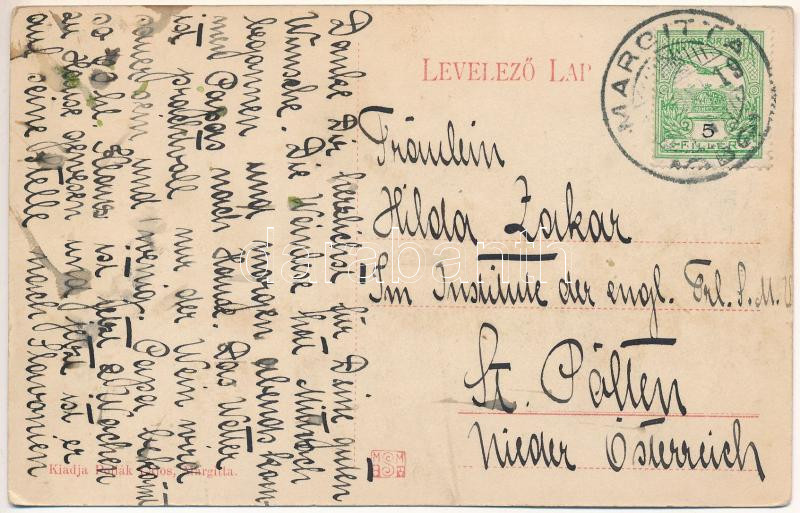 LEVELEZŐ LAP
MARGITTA
5
FILLER
Fräulein
Hilda Zakar
Im Institute der engl. Frl. S. M. V
St. Pölten
Nieder Österreich
Danke Dir herzlichst für Dein guten
Wünsche. Die Weinlese hat Mittwoch
begonnen und morgen abends kom
mt Papa nach Hause. Das Wetter
ist prachtvoll nur der Wein wird
und wenig. Papa bekam
ist jetzt 2 Wochen
zu Hause gewesen und jetzt ist er
auf seine Stelle nach Slavonien
Kiadja Lajos, Margitta.
darabanth